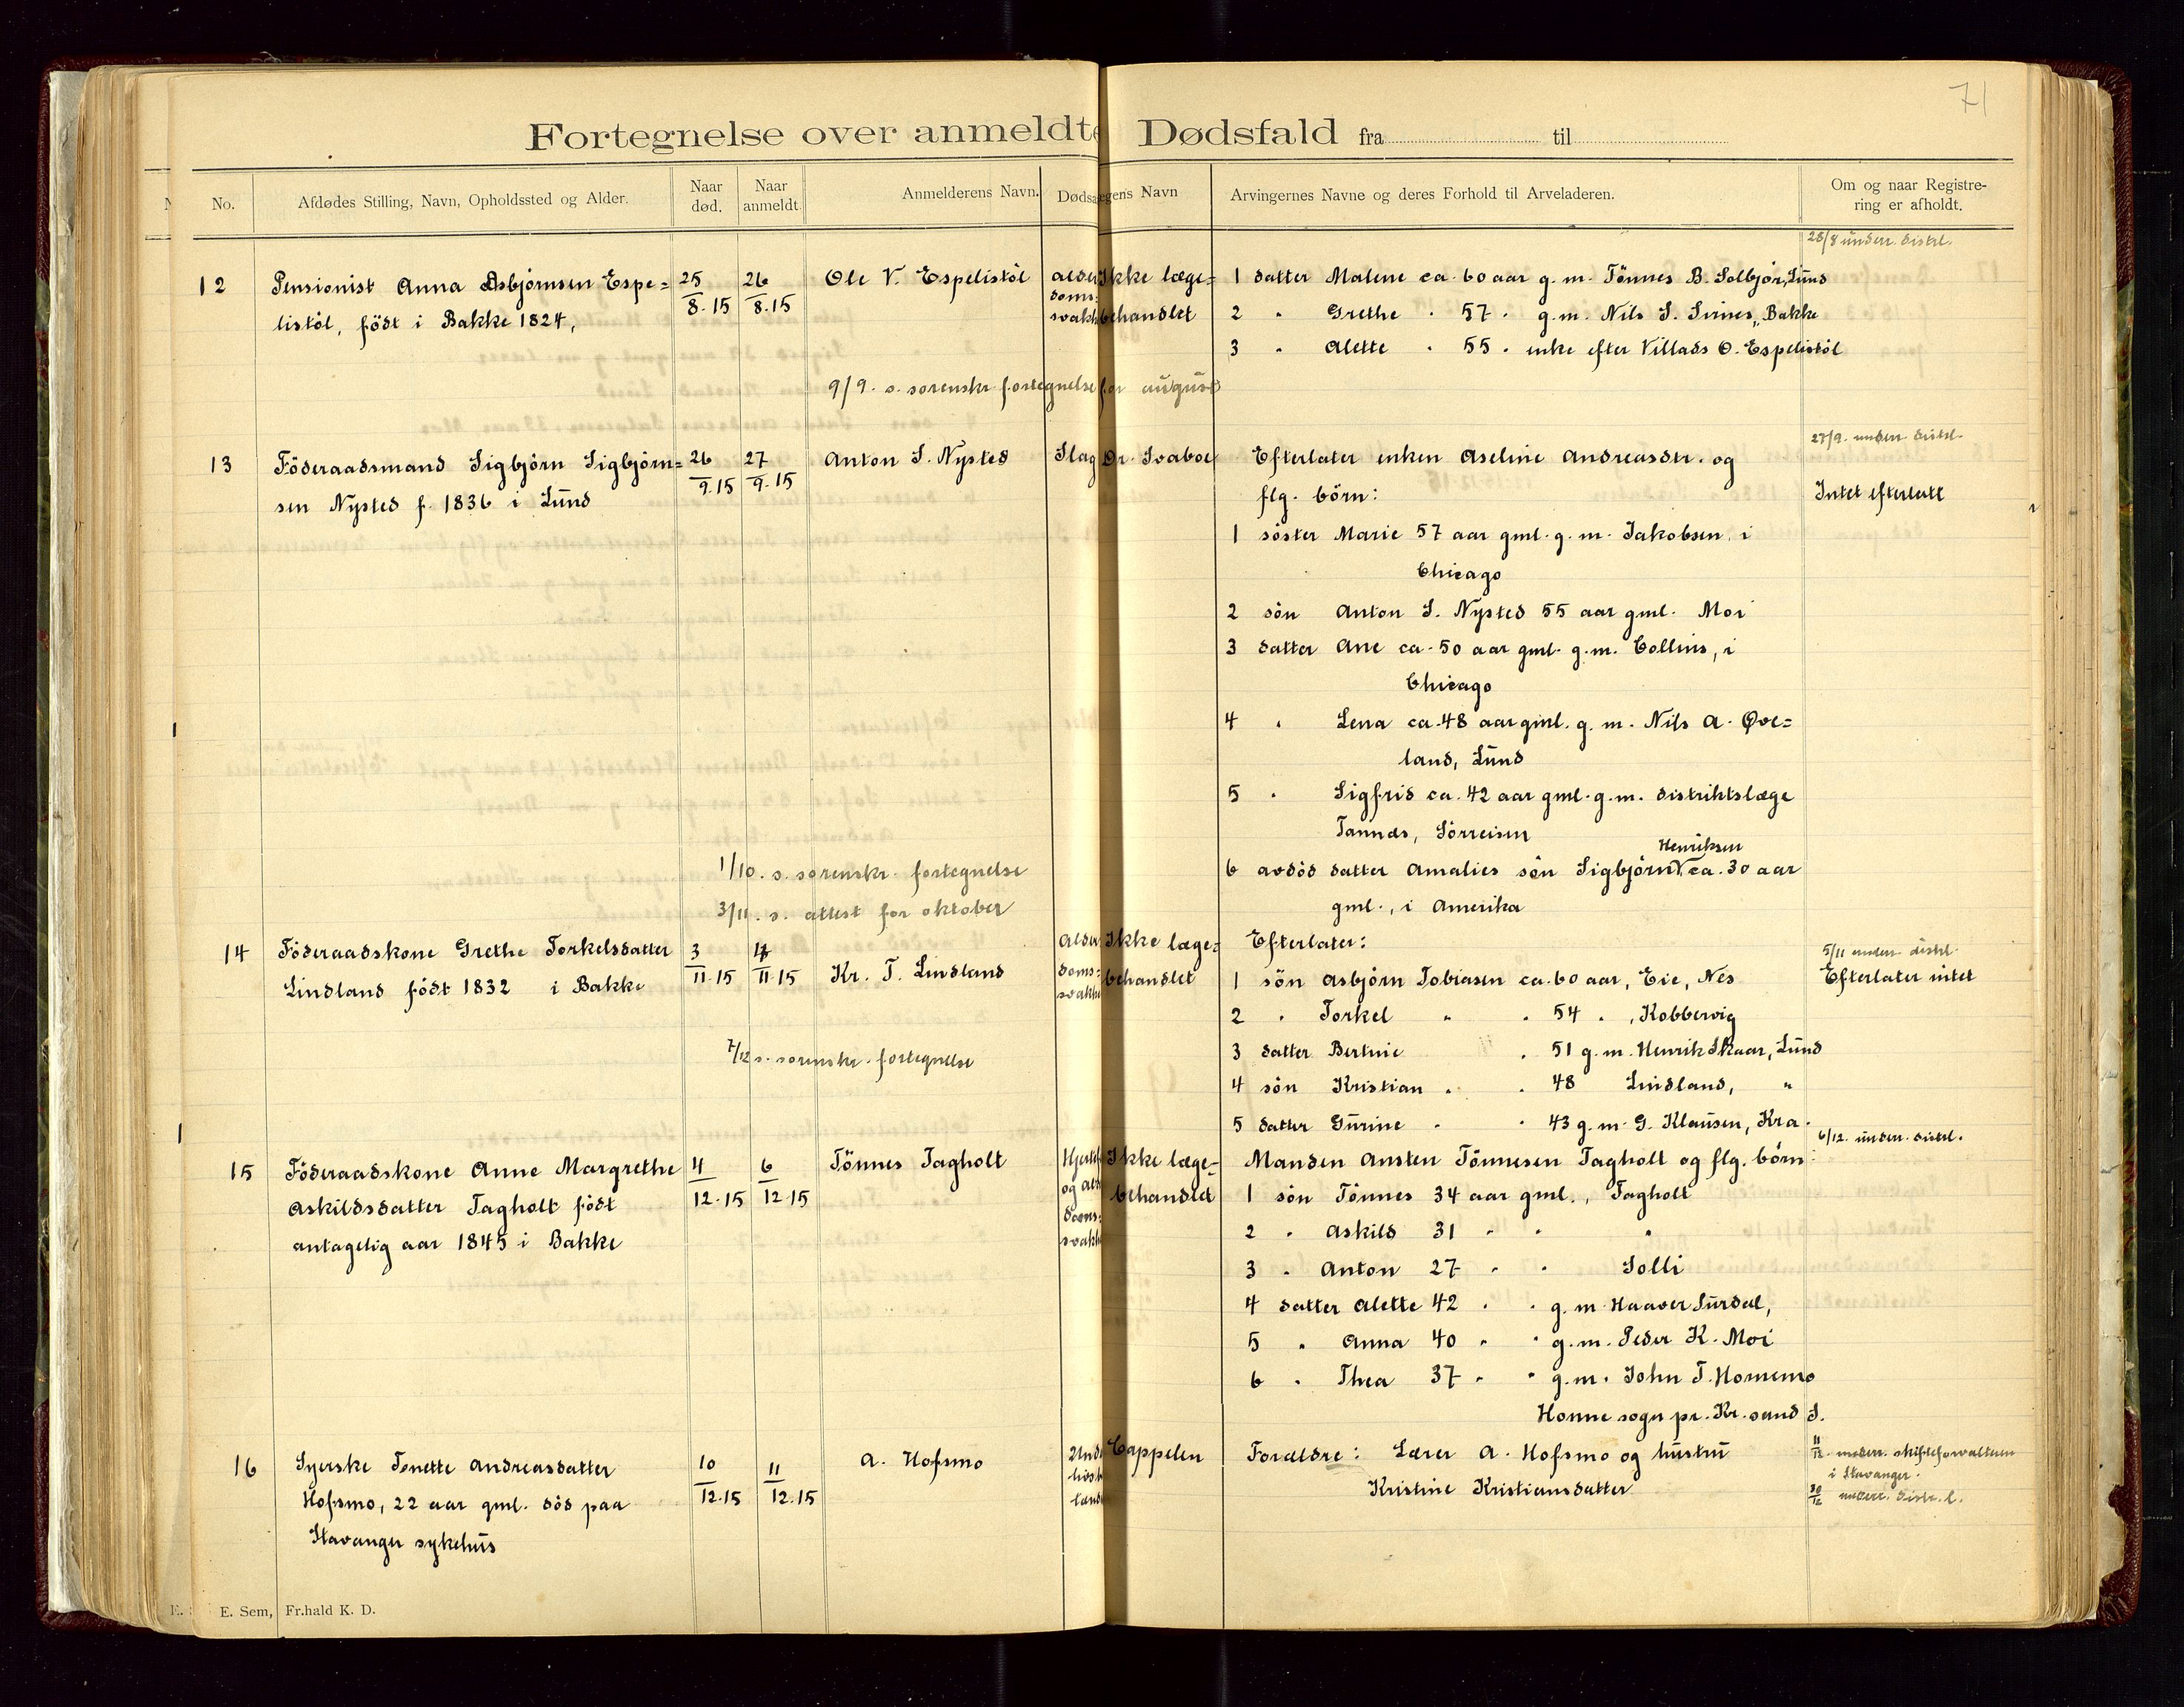 71
Fortegnelse over anmeldte Dødsfald fra til
No.
Afdødes Stilling, Navn, Opholdssted og Alder.
Naar død.
Naar anmeldt.
Anmelderens Navn.
Dødsa
egens Navn
Arvingernes Navne og deres Forhold til Arveladeren.
Om og naar Registre-
ring er afholdt.
28/8 underr. distrl.
12 Pensionist Anna Asbjørnsen Espe= 25/8.15 26/8.15 Ole V. Espelistöl alder Ikke læge= 1 datter Malene ca 60 aar g. m. Tönnes B. Solbjör, Lund
listöl, född i Bakke 1824, doms= svakh behandlet 2 " Grethe " 57 " g.m. Nils S. Sirnes, Bakke
3 " Alette " 55 " enke efter Villads O. Espelistöl
9/9. s. sorenskr. fortegnelse for august
27/9. underr distrl.
13 Föderaadsmand Sigbjörn Sigbjörn= 26/9.15 27/9.15 Anton S. Nysted Slag Dr. Svaboe Efterlater enken Aseline Andreasdtr. og
sen Nysted f. 1836 i Lund flg. börn: Intet efterlatt
1 söster Marie 57 aar gml. g. m. Jakobsen, i
Chicago
2 sön Anton S. Nysted 55 aar gml. Moi
3 datter Ane ca. 50 aar gml. g.m. Collins, i
Chicago
4 " Lena ca. 48 aar gml. g. m. Nils A. Öve=
land, Lund
5 " Sigfrid ca. 42 aar gml. g.m. distriktslæge
Tannæs, Sörreisen
Henriksen
1/10. s. sorenskr. fortegnelse 6 avdöd datter Amalies sön Sigbjörn ca. 30 aar
3/11. s. attest for oktober gml., i Amerika
14 Föderaadskone Grethe Torkelsdatter 3/11.15 4/11.15 Kr. T. Lindland Alder doms= svakhe Ikke læge= behandlet Efterlater: 5/11 underr distrl.
Lindland födt 1832 i Bakke 1 sön Asbjörn Tobiasen ca. 60 aar, Eie, Nes Efterlater intet
2 " Torkel " " 54 " , Kobbervig
7/12 s. sorenskr. fortegnelse 3 datter Bertine " 51 g. m. Henrik Skaar, Lund
4 sön Kristian " " 48 Lindland, "
5 datter Gurine " " 43 g. m. G. Klausen, Kra.
6/12. underr. distrl.
15 Föderaadskone Anne Margrethe 4/12.15 6/12.15 Tönnes Tagholt Hjertef og ald doms= svakh Ikke læge= behandlet Manden Ansten Tönnesen Tagholt og flg. börn:
Askildsdatter Tagholt födt 1 sön Tönnes 34 aar gml., Tagholt
antagelig aar 1845 i Bakke 2 " Askild 31 " " "
3 " Anton 27 " " Solli
4 datter Alette 42 " " g. m. Haaver Surdal,
5 " Anna 40 " " g. m. Peder K. Moi
6 " Thea 37 " " g. m. John T. Homemo
Honne sogn pr. Kr. sand S.
16 Syerske Tonette Andreasdatter 10/12.15 11/12.15 A. Hofsmo Cappelen Forældre: Lærer A. Hofsmo og hustru 11/12. underr. skifteforvalteren
Hofsmo, 22 aar gml. död paa Kristine Kristiansdatter i Stavanger.
Stavanger sykehus 30/12 underr. distr. l.
E. Sem, Fr.hald K. D.